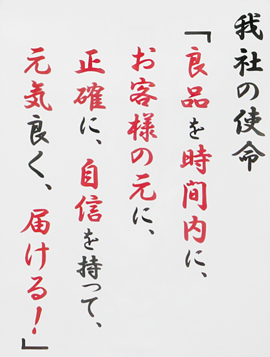 我社の使命
「良品を時間内に、
お客様の元に、
正確に、自信を持って、
元気良く、届ける！」